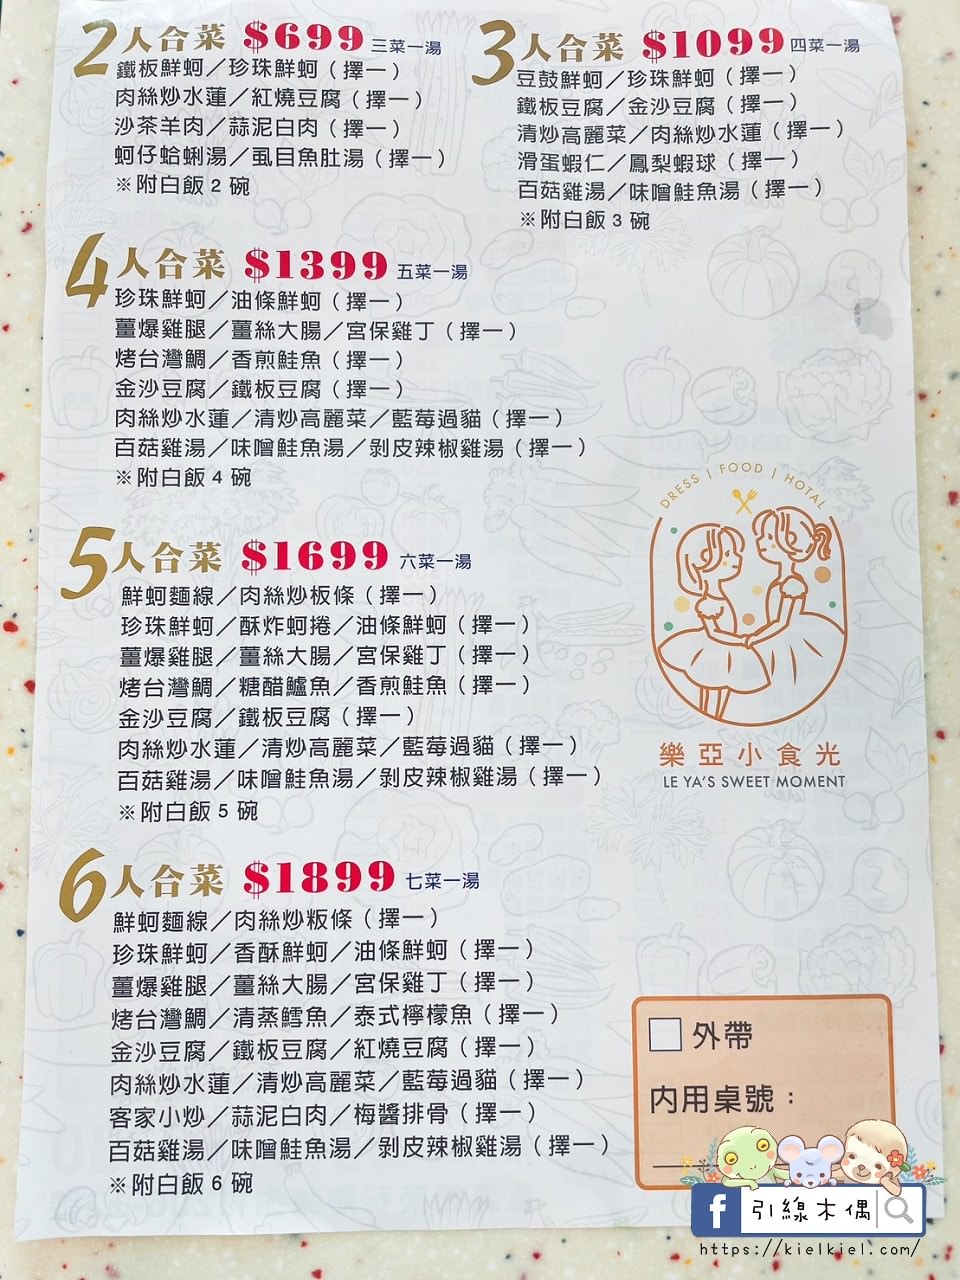 2人合菜 $699 三菜一湯
鐵板鮮蚵／珍珠鮮蚵（擇一）
肉絲炒水蓮／紅燒豆腐（擇一）
沙茶羊肉／蒜泥白肉（擇一）
蚵仔蛤蜊湯／虱目魚肚湯（擇一）
※附白飯 2 碗
3人合菜 $1099 四菜一湯
豆鼓鮮蚵／珍珠鮮蚵（擇一）
鐵板豆腐／金沙豆腐（擇一）
清炒高麗菜／肉絲炒水蓮（擇一）
滑蛋蝦仁／鳳梨蝦球（擇一）
百菇雞湯／味噌鮭魚湯（擇一）
※附白飯 3 碗
4人合菜 $1399 五菜一湯
珍珠鮮蚵／油條鮮蚵（擇一）
薑爆雞腿／薑絲大腸／宮保雞丁（擇一）
烤台灣鯛／香煎鮭魚（擇一）
金沙豆腐／鐵板豆腐（擇一）
肉絲炒水蓮／清炒高麗菜／藍莓過貓（擇一）
百菇雞湯／味噌鮭魚湯／剝皮辣椒雞湯（擇一）
※附白飯 4 碗
DRESS | FOOD | HOTAL
樂亞小食光
LE YA'S SWEET MOMENT
5人合菜 $1699 六菜一湯
鮮蚵麵線／肉絲炒板條（擇一）
珍珠鮮蚵／酥炸蚵捲／油條鮮蚵（擇一）
薑爆雞腿／薑絲大腸／宮保雞丁（擇一）
烤台灣鯛／糖醋鱸魚／香煎鮭魚（擇一）
金沙豆腐／鐵板豆腐（擇一）
肉絲炒水蓮／清炒高麗菜／藍莓過貓（擇一）
百菇雞湯／味噌鮭魚湯／剝皮辣椒雞湯（擇一）
※附白飯 5 碗
6人合菜 $1899 七菜一湯
鮮蚵麵線／肉絲炒粄條（擇一）
珍珠鮮蚵／香酥鮮蚵／油條鮮蚵（擇一）
薑爆雞腿／薑絲大腸／宮保雞丁（擇一）
烤台灣鯛／清蒸鱈魚／泰式檸檬魚（擇一）
金沙豆腐／鐵板豆腐／紅燒豆腐（擇一）
肉絲炒水蓮／清炒高麗菜／藍莓過貓（擇一）
客家小炒／蒜泥白肉／梅醬排骨（擇一）
百菇雞湯／味噌鮭魚湯／剝皮辣椒雞湯（擇一）
※附白飯 6 碗
外帶
內用桌號：
f 引線木偶
https://kielkiel.com/